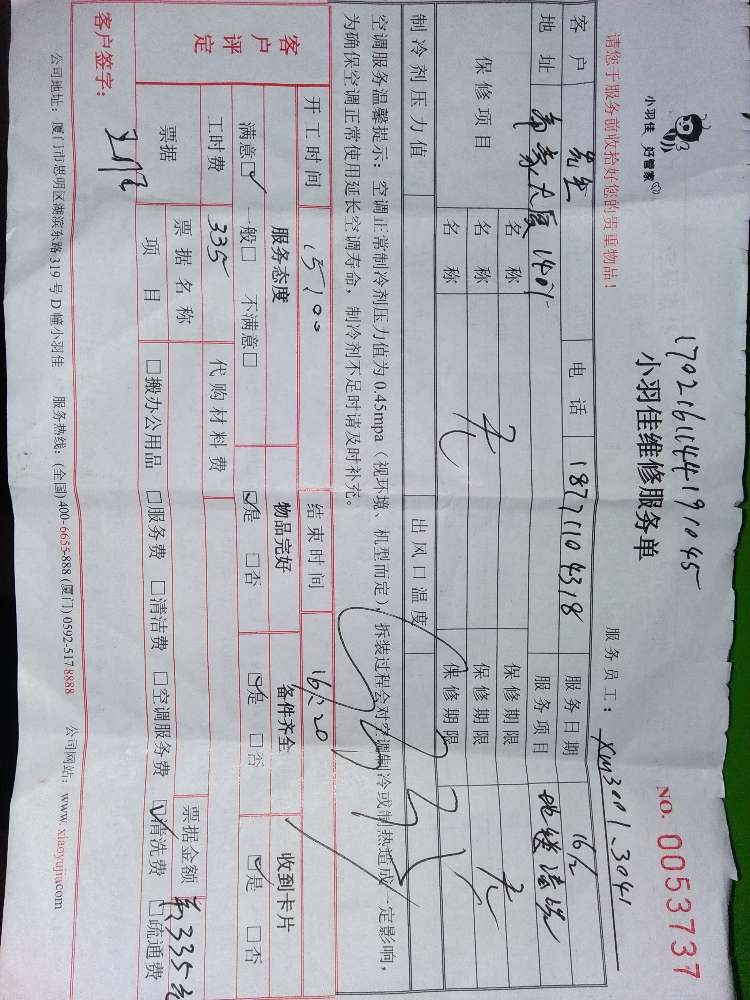 小羽佳 好管家
170216114419045
小羽佳维修服务单
NO. 0053737
请您于服务前收拾好您的贵重物品!
服务员工: XM3001_3041
客户 电话 18771104318 服务日期 16/2
地址 大厦 1401 服务项目 地毯清洗
保修项目 名称 无 保修期限 无
名称 保修期限
名称 保修期限
制冷剂压力值 出风口温度
空调服务温馨提示: 空调正常制冷剂压力值为0.45mpa(视环境、机型而定), 拆装过程会对空调制冷或制热造成一定影响,
为确保空调正常使用延长空调寿命, 制冷剂不足时请及时补充。
335
开工时间 15:00 结束时间 16:20
客户评定 服务态度 物品完好 备件齐全 收到卡片
满意☑ 一般□ 不满意□ ☑是 □否 ☑是 □否 ☑是 □否
工时费 335 代购材料费
票据 票据名称 票据金额 335元
项目 □搬办公用品 □服务费 □清洁费 □空调服务费 ☑清洗费 □疏通费
客户签字:
公司地址: 厦门市思明区湖滨东路319号D幢小羽佳 服务热线: (全国)400-6655-888 (厦门) 0592-5178888 公司网站: www.xiaoyujia.com